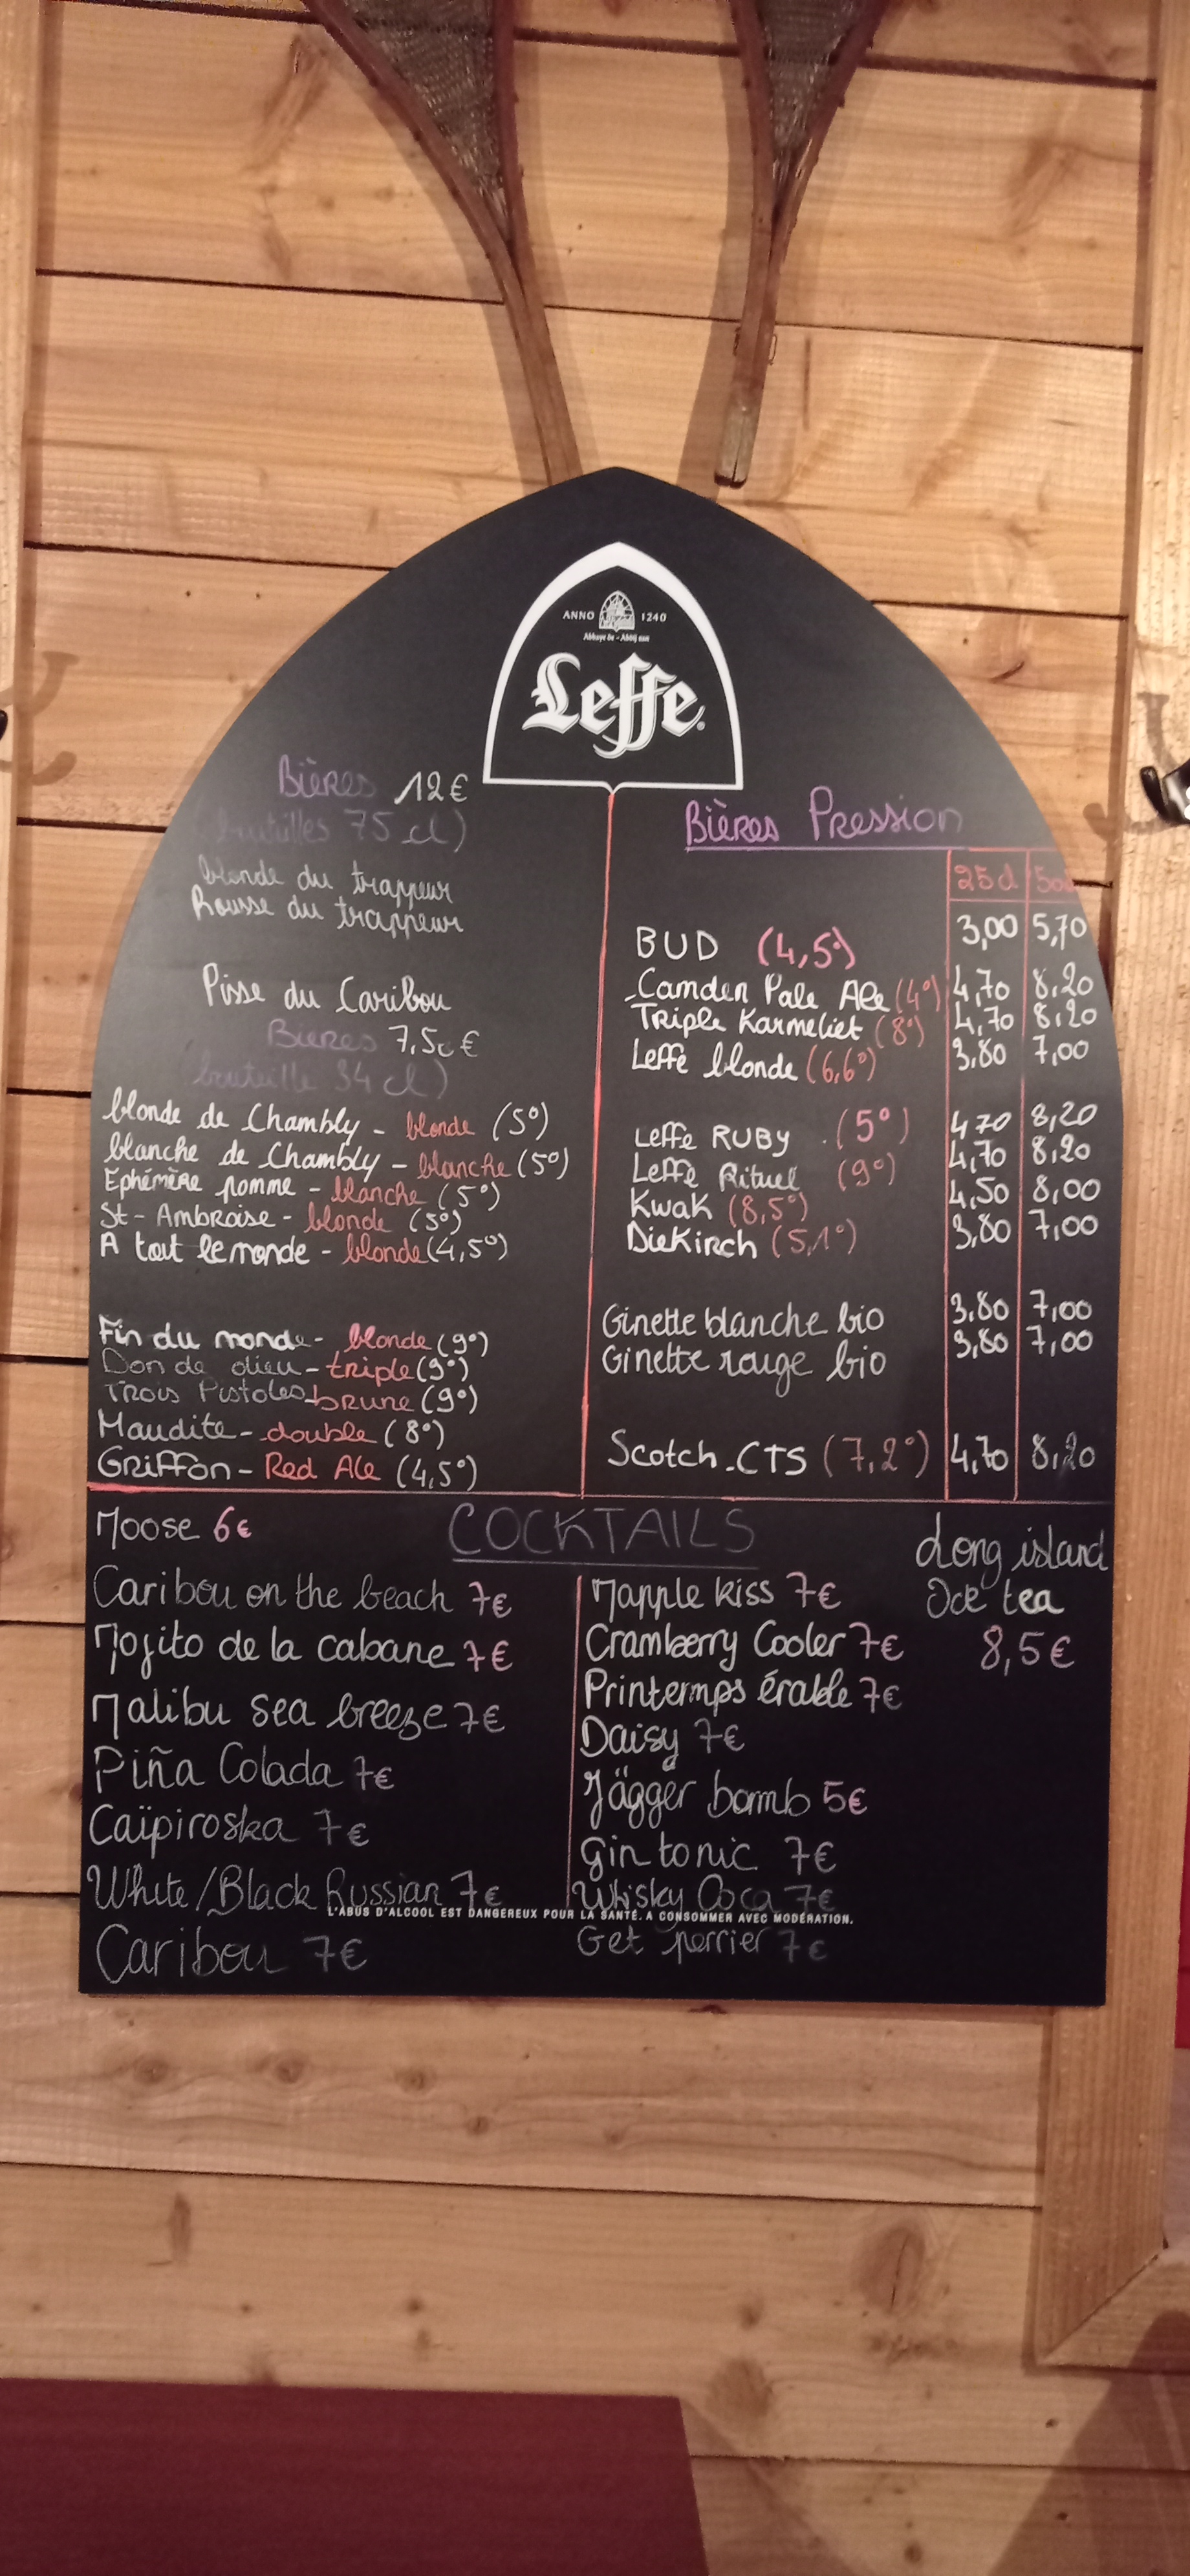 ANNO 1240
Leffe
Bières 12€
bouteilles 75 cl)
blonde du trappeur
Rousse du trappeur
Pisse du Caribou
Bieres 7,50€
bouteille 34 cl)
blonde de Chambly - blonde (5°)
blanche de Chambly - blanche (5°)
Ephémère pomme - blanche (5°)
St-Ambroise - blonde (5°)
A tout le monde - blonde (4,5°)
Fin du monde - blonde (9°)
Don de dieu - triple (9°)
Trois Pistoles brune (9°)
Maudite - double (8°)
Griffon - Red Ale (4,5°)
Bières Pression
25cl 50cl
BUD (4,5°) 3,00 5,70
Camden Pale Ale (4°) 4,70 8,20
Triple Karmeliet (8°) 4,70 8,20
Leffe blonde (6,6°) 3,80 7,00
Leffe RUBY (5°) 4,70 8,20
Leffe Rituel (9°) 4,70 8,20
Kwak (8,5°) 4,50 8,00
DieKirch (5,1°) 3,80 7,00
Ginette blanche bio 3,80 7,00
Ginette rouge bio 3,80 7,00
Scotch-CTS (7,2°) 4,70 8,20
COCKTAILS
Moose 6€
Caribou on the beach 7€
Mojito de la cabane 7€
Malibu sea breeze 7€
Piña Colada 7€
Caïpiroska 7€
White/Black Russian 7€
Caribou 7€
Mapple kiss 7€
Cramberry Cooler 7€
Printemps érable 7€
Daisy 7€
Jägger bomb 5€
Gin tonic 7€
Whisky Coca 7€
Get perrier 7€
Long island
Ice tea
8,5€
L'ABUS D'ALCOOL EST DANGEREUX POUR LA SANTÉ. A CONSOMMER AVEC MODÉRATION.